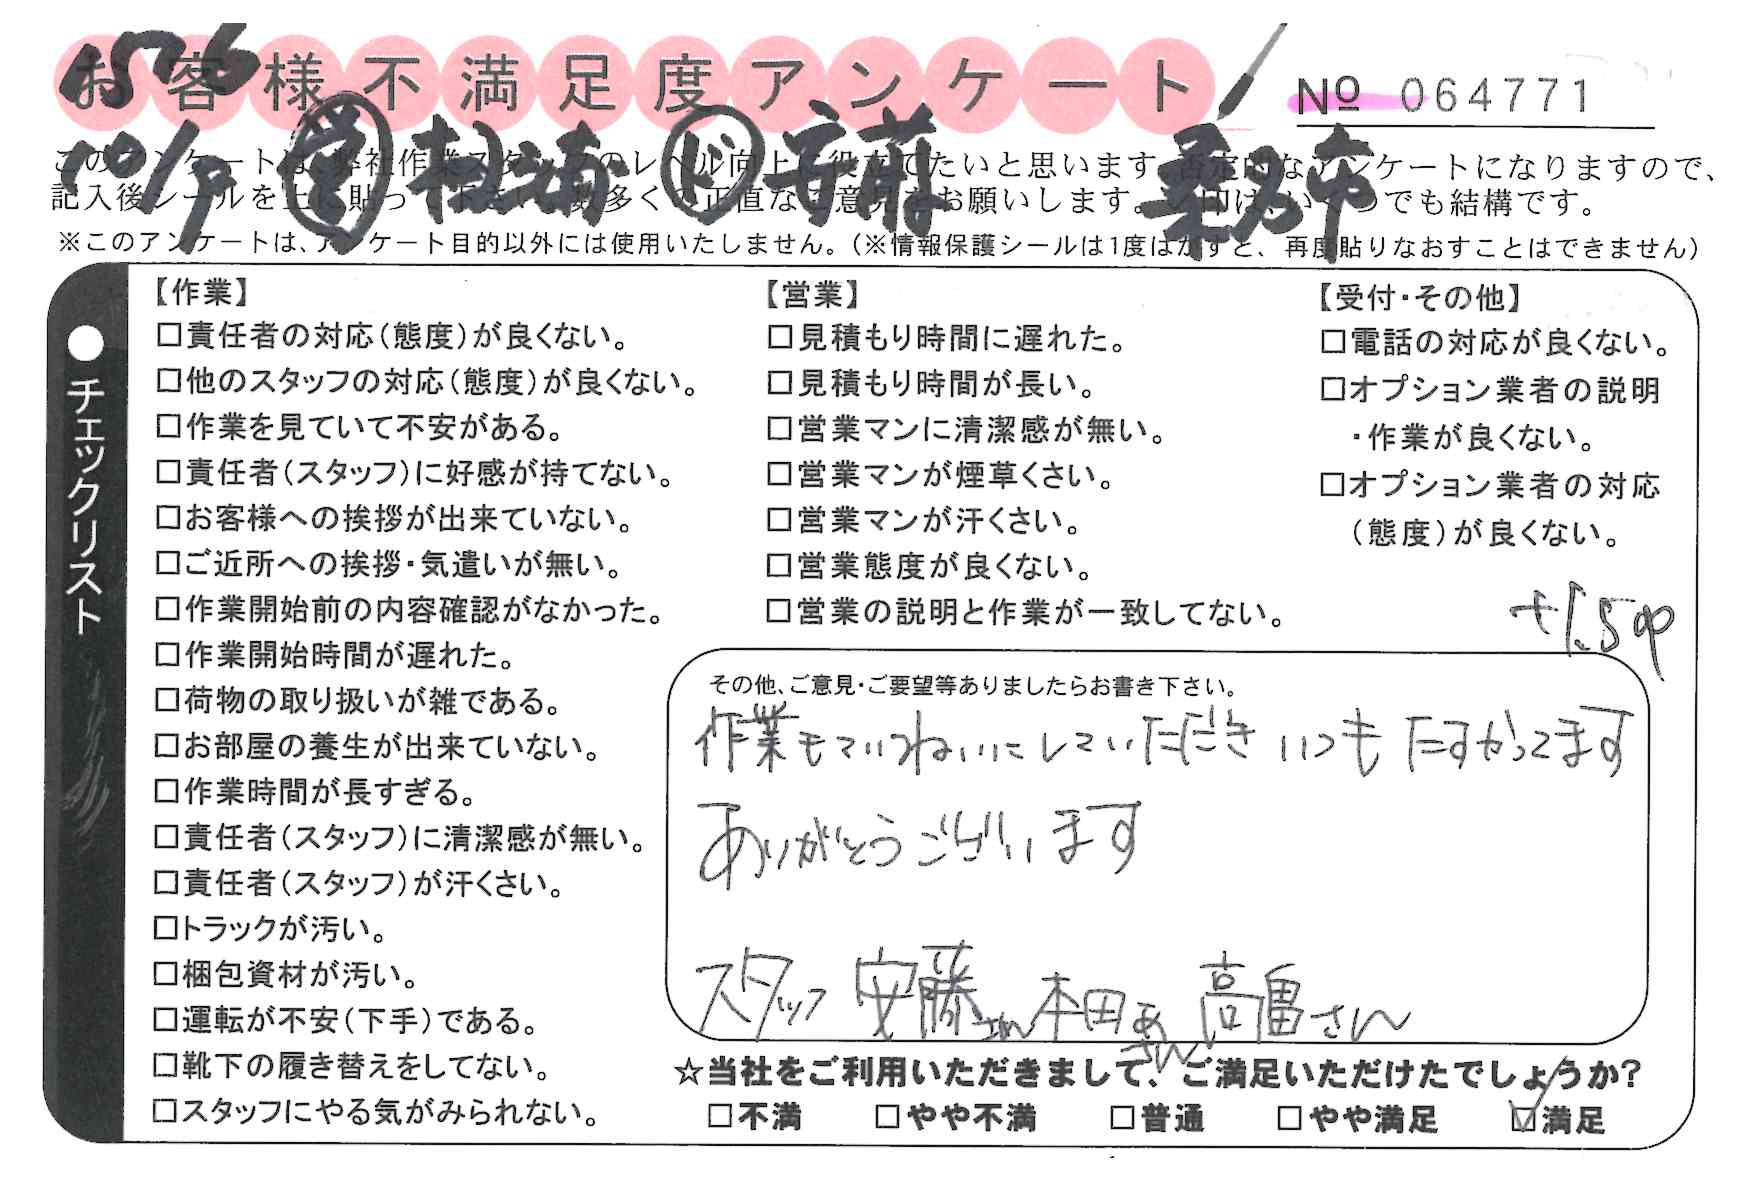 1576
お客様不満足度アンケート
№ 064771
10/9 営 松浦 ド 安藤 桑名市
このアンケートは、弊社作業スタッフのレベル向上に役立てたいと思います。否定的なアンケートになりますので、
記入後シールを上に貼って下さい。数多くの正直なご意見をお願いします。レ印は、いくつでも結構です。
※このアンケートは、アンケート目的以外には使用いたしません。(※情報保護シールは1度はがすと、再度貼りなおすことはできません)
●チェックリスト
【作業】
□責任者の対応(態度)が良くない。
□他のスタッフの対応(態度)が良くない。
□作業を見ていて不安がある。
□責任者(スタッフ)に好感が持てない。
□お客様への挨拶が出来ていない。
□ご近所への挨拶・気遣いが無い。
□作業開始前の内容確認がなかった。
□作業開始時間が遅れた。
□荷物の取り扱いが雑である。
□お部屋の養生が出来ていない。
□作業時間が長すぎる。
□責任者(スタッフ)に清潔感が無い。
□責任者(スタッフ)が汗くさい。
□トラックが汚い。
□梱包資材が汚い。
□運転が不安(下手)である。
□靴下の履き替えをしてない。
□スタッフにやる気がみられない。
【営業】
□見積もり時間に遅れた。
□見積もり時間が長い。
□営業マンに清潔感が無い。
□営業マンが煙草くさい。
□営業マンが汗くさい。
□営業態度が良くない。
□営業の説明と作業が一致してない。
【受付・その他】
□電話の対応が良くない。
□オプション業者の説明
・作業が良くない。
□オプション業者の対応
(態度)が良くない。
+1.5p
その他、ご意見・ご要望等ありましたらお書き下さい。
作業もていねいにしていただき いつも たすかってます
ありがとうございます
スタッフ 安藤さん 本田さん 高畠さん
☆当社をご利用いただきまして、ご満足いただけたでしょうか?
□不満 □やや不満 □普通 □やや満足 ☑満足